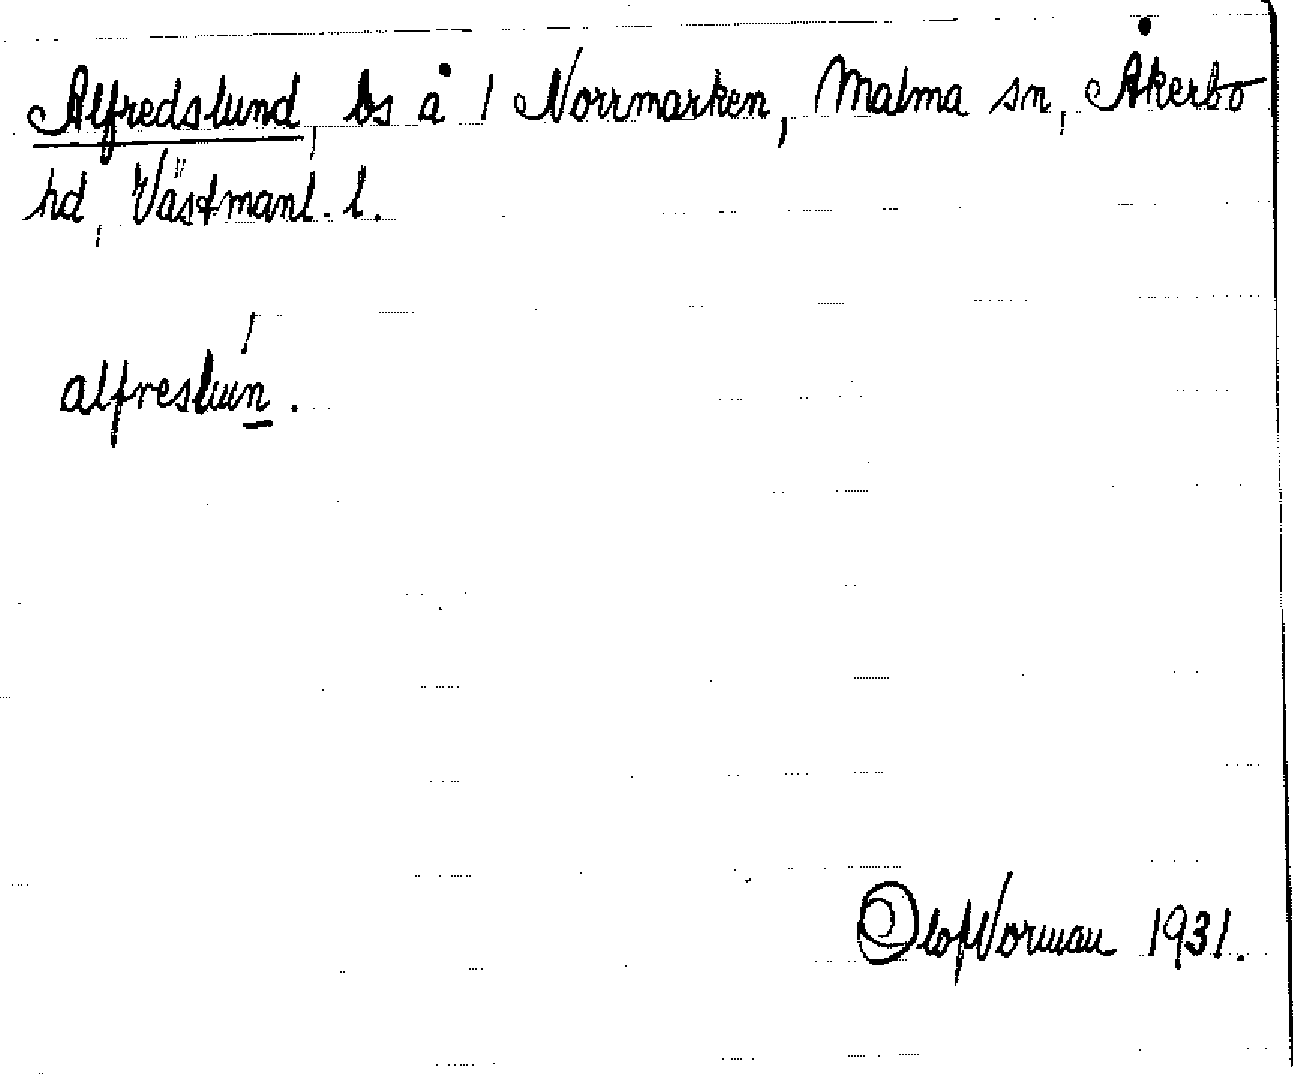 Alfredslund, bs å 1 Norrmarken, Malma sn, Åkerbo
hd, Västmanl. l.
alfreslún.
Olof Norman 1931.